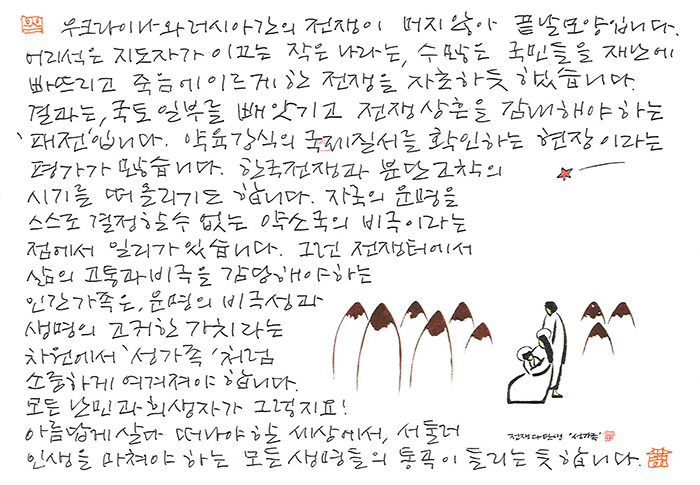 우크라이나와 러시아간의 전쟁이 머지않아 끝날모양입니다.
어리석은 지도자가 이끄는 작은 나라는, 수많은 국민들을 재난에
빠뜨리고 죽음에 이르게한 전쟁을 자초하듯 했습니다.
결과는, 국토 일부를 빼앗기고 전쟁상흔을 감내해야 하는
'패전'입니다. 약육강식의 국제질서를 확인하는 현장이라는
평가가 많습니다. 한국전쟁과 분단고착의
시기를 떠올리기도 합니다. 자국의 운명을
스스로 결정할 수 없는 약소국의 비극이라는
점에서 일리가 있습니다. 그런 전쟁터에서
삶의 고통과 비극을 감당해야하는
인간가족은, 운명의 비극성과
생명의 고귀한 가치라는
차원에서 '성가족'처럼
소중하게 여겨져야 합니다.
모든 난민과 희생자가 그렇지요!
아름답게 살다 떠나야 할 세상에서, 서둘러
전쟁과 '성가족'
인생을 마쳐야 하는 모든 생명들의 통곡이 들리는 듯 합니다.